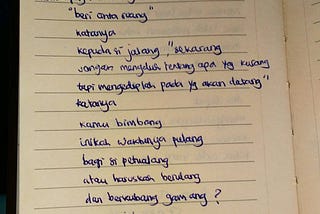 "beri cinta ruang"
katanya
kepada si jalang, "sekarang
jangan mengadusi tentang apa yg kurang
tapi mengeduplah pada yg akan datang"
katanya
kamu bimbang
inikah waktunya pulang
bagi si petualang
atau haruskah berulang
dan berkubang gamang ?